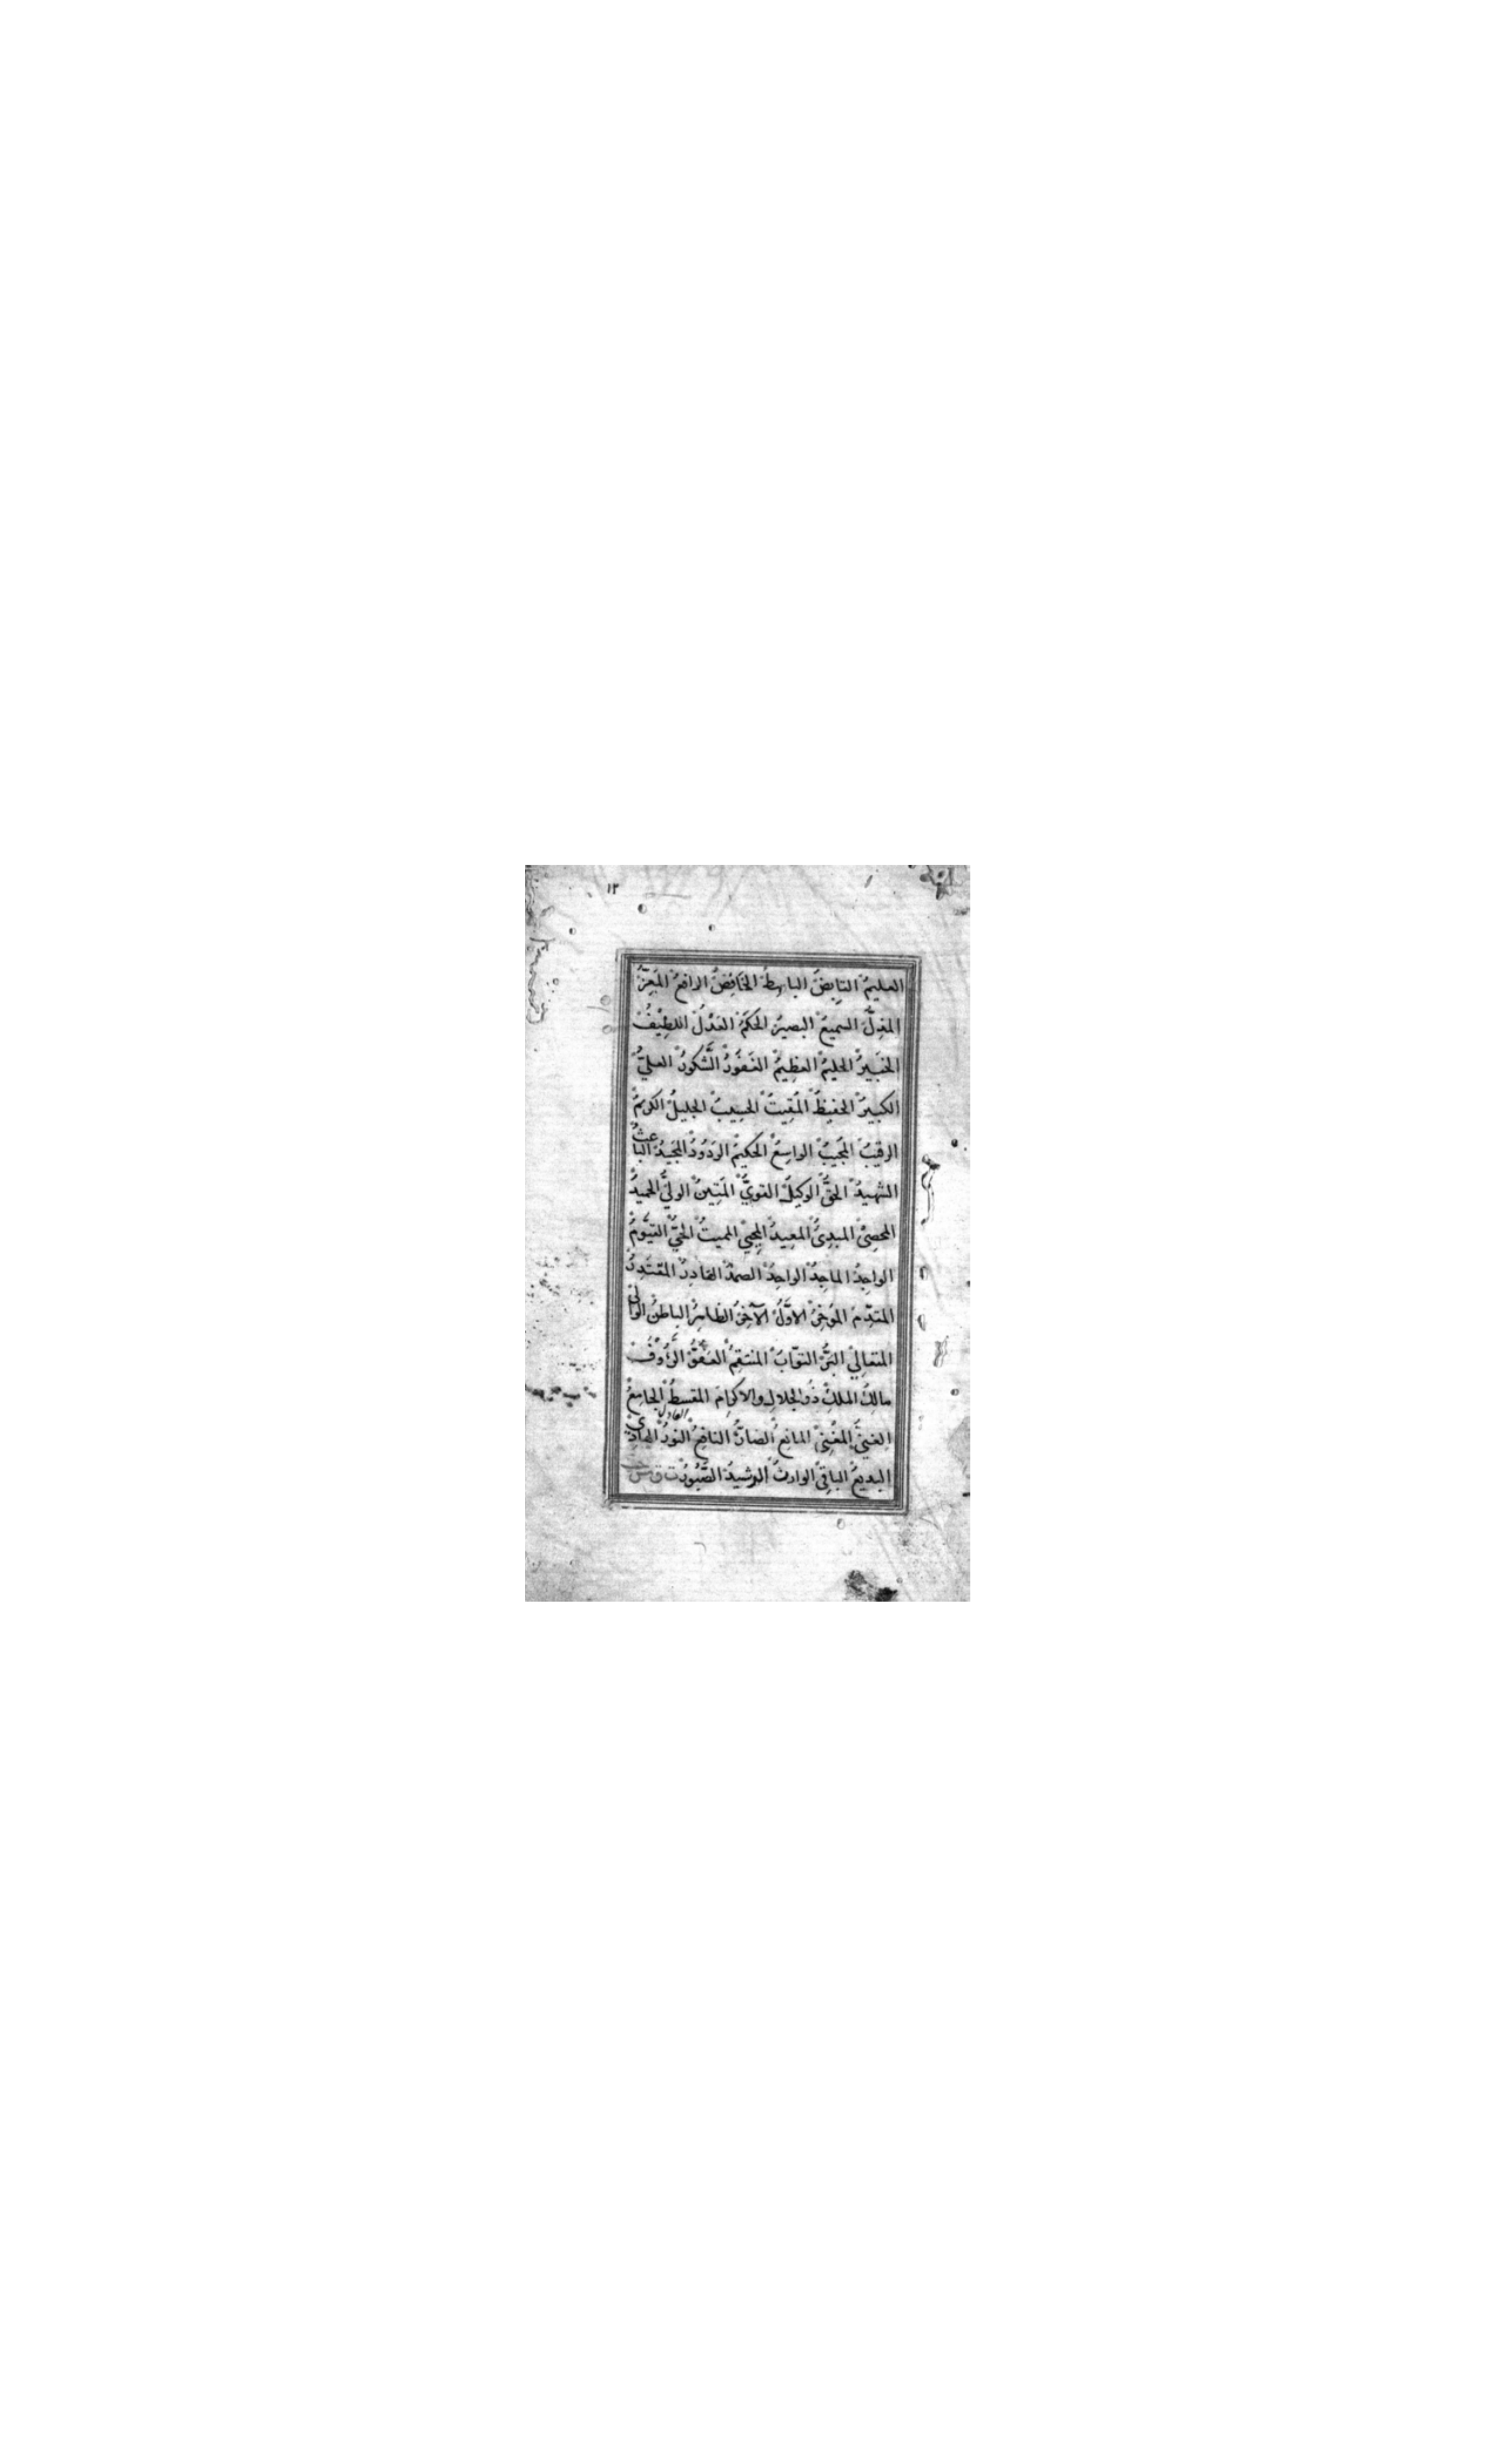 ١٢
العليمُ القابِضُ الباسِطُ الخَافِضُ الرافعُ المُعِزُّ
المذِلُّ السميعُ البصيرُ الحكَمُ العَدْلُ اللطِيْفُ
الخَبَيرُ الحليمُ العظِيمُ الغَفُورُ الشَّكورُ العليُّ
الكبيرُ الحفيظُ المُقِيتُ الحسِيبُ الجليلُ الكريمُ
الرقيبُ المجيبُ الواسِعُ الحكيمُ الودَوُدُ المجيدُ الباعثُ
الشهيدُ الحقُّ الوكيلُ القويُّ المَتِينُ الوليُّ الحميدُ
المحصِىْ المبدِىُٔ المعِيدُ المحيِي المميتُ الحيُّ القيّومُ
الواجِدُ الماجِدُ الواحِدُ الصمدُ القادِرُ المقتَدِرُ
المقدِّمُ الموَخِّرُ الاوَّلُ الآخِرُ الظاهِرُ الباطنُ الوالِيْ
المتعالِيْ البَرُّ التوّابُ المنتقِمُ العَفُوُّ الرَّؤُوْفُ
مالِكُ الملكِ ذُوالجلالِ والاكرَامِ المقسطُ الجامِعُ
العادل
الغنيُّ المغْنِيْ المانِعُ الضارُّ النافِعُ النورُ الهادِيْ
البديعُ الباقِيْ الوارثُ الرشيدُ الصَّبُورُ ت ق س حب